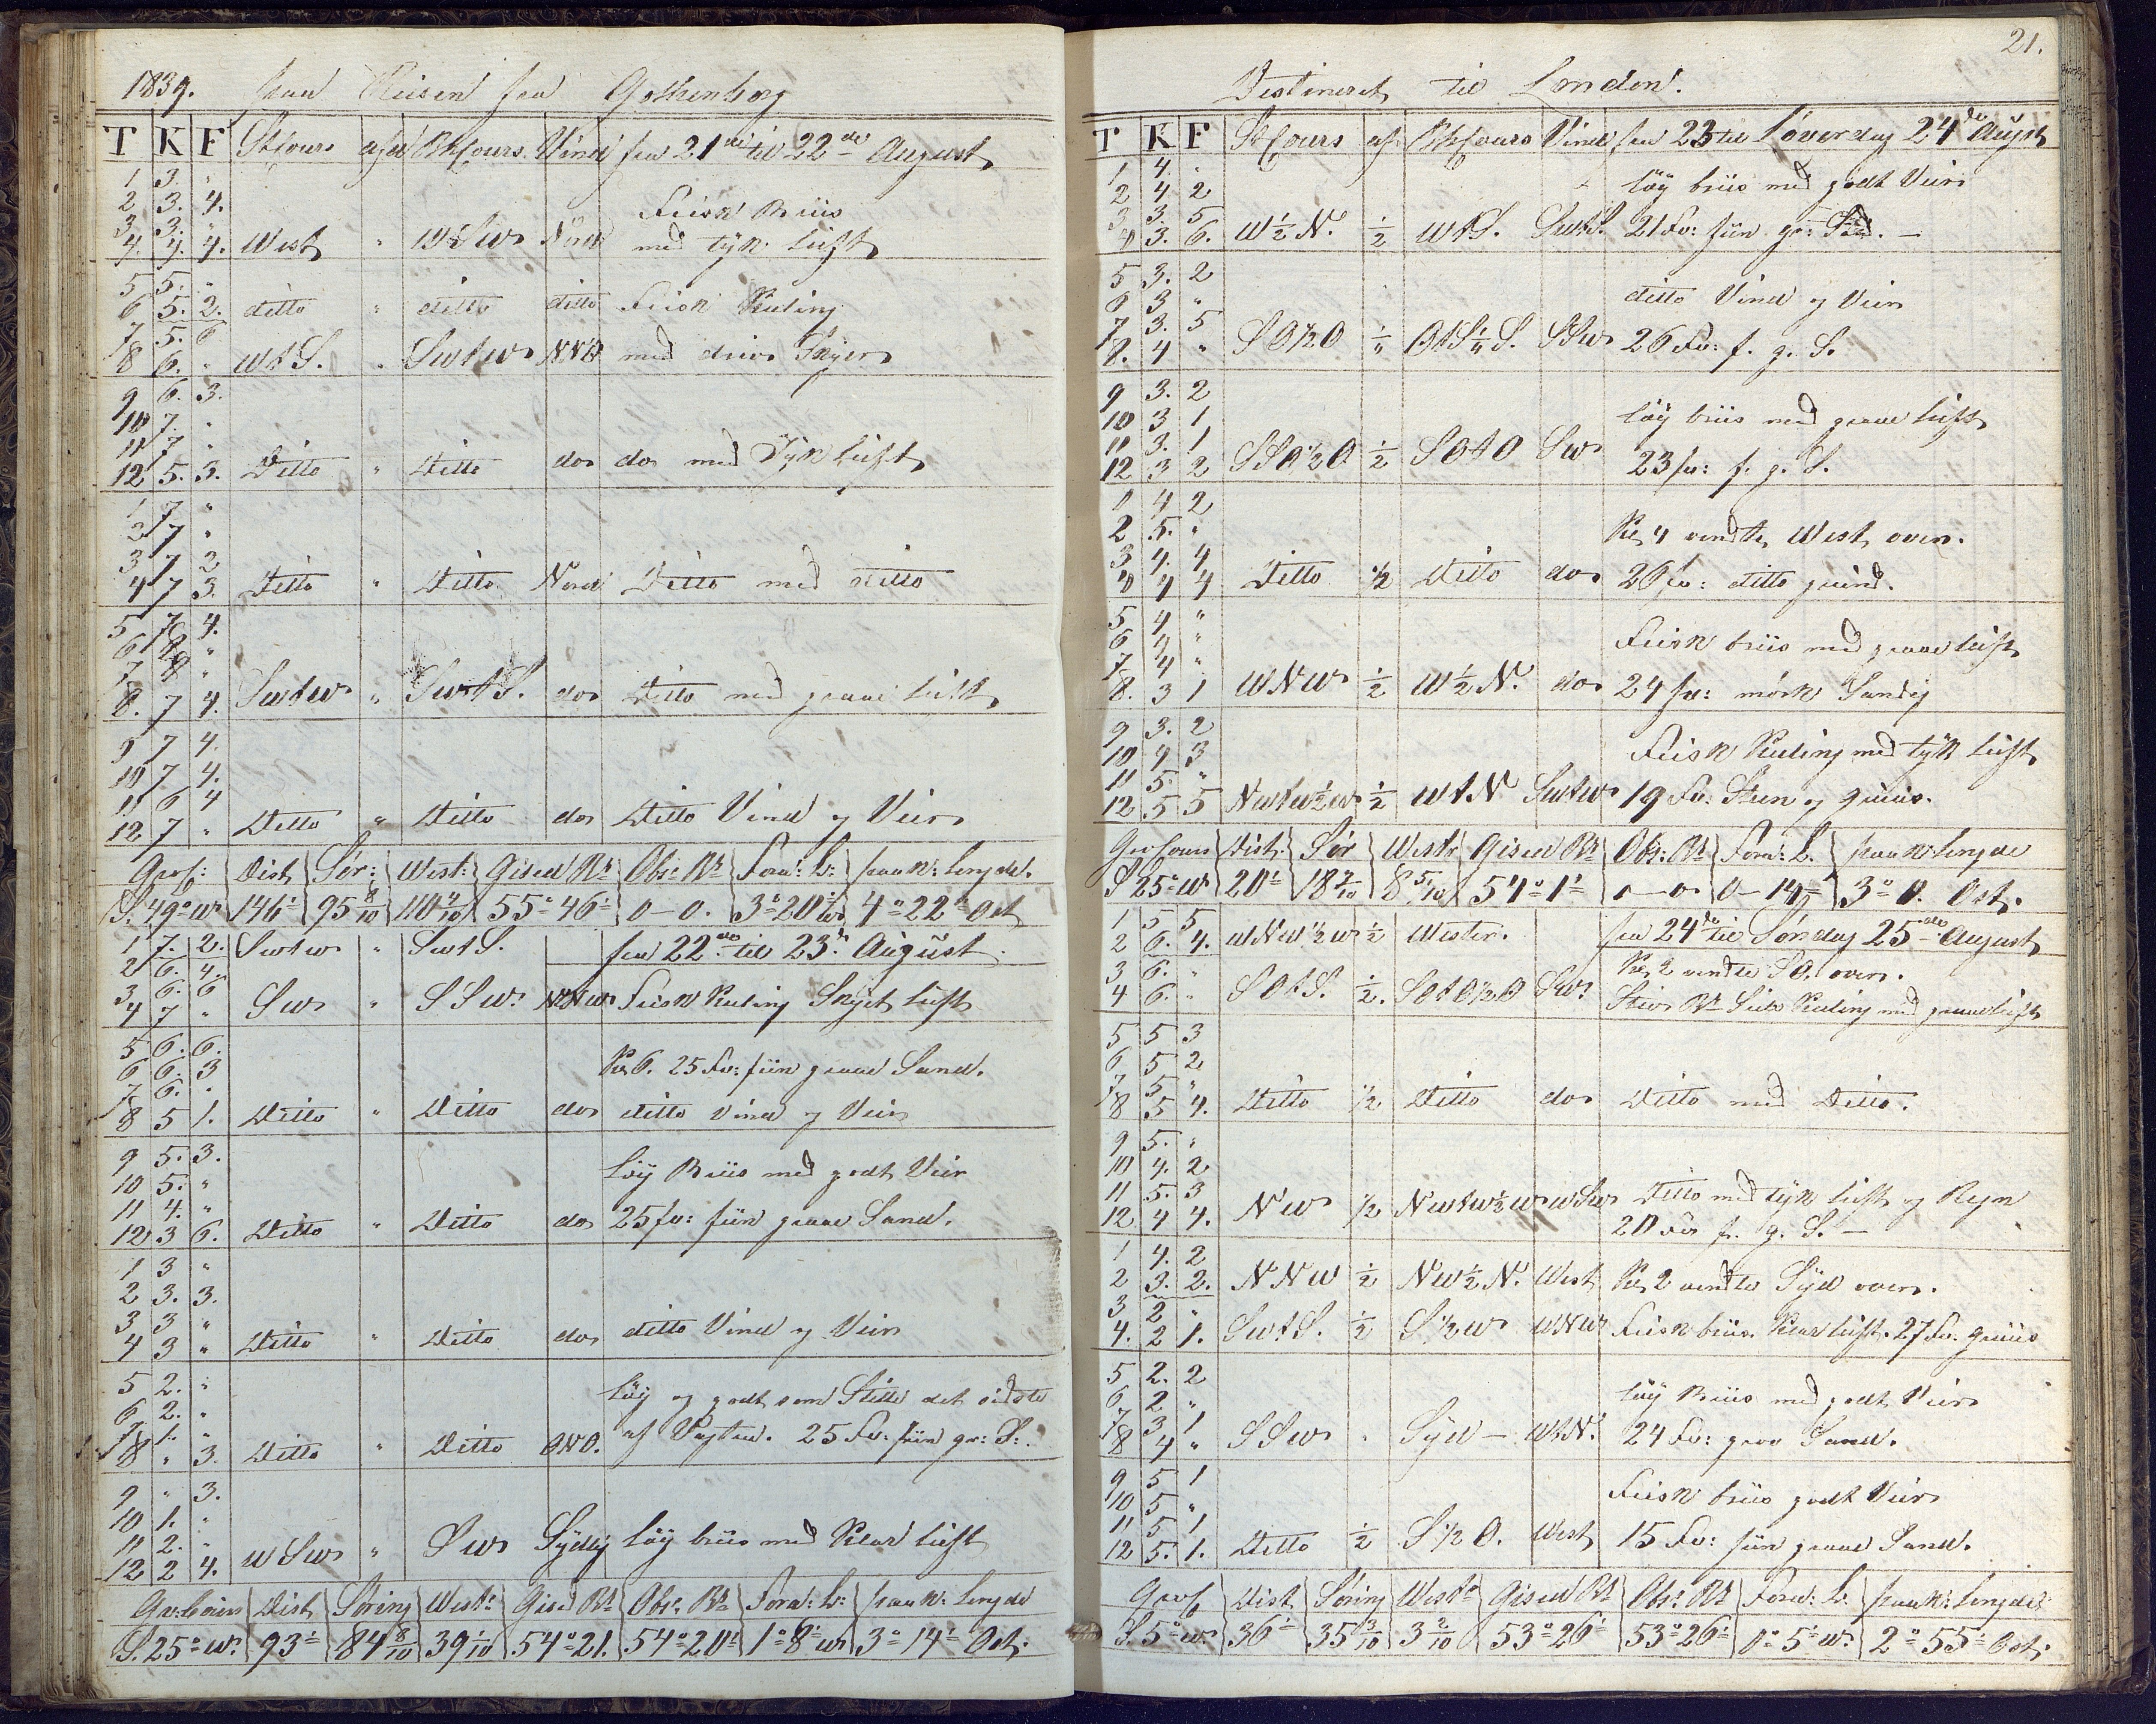 1839. paa Reisen fra Gothenborg
T K F St Cours afd BhCours Vind fra 21de til 22de August
1 3. "
2 3. 4. Frisk Briis
3 3. "
4. 4. 4. West " WSw Nord med tyk luft
5 5. "
6 5. 2. ditto " ditto ditto Frisk Kuling
7 5. 6
8 6. " WtS. " Swtw NNO med driv Skyer
9 6. 3.
10 7. "
11 7 "
12 5. 3. Ditto " Ditto do do med Tyk luft
1 7 "
2 7 "
3 7 2
4 7 3. Ditto " Ditto Nord Ditto med ditto
5 7 4.
6 8 "
7 8 "
8. 7 4. Swtw " SwtS. do Ditto med graae luft
9 7 4.
10 7 4.
11 6 4
12 7 " Ditto " Ditto do Ditto Vind og Veir
Dist Sør: West: Gised Br Obs: Br Foran: L: paak: Lengde.
S. 49° w 146' 95 8/10 110 55° 46' 0–0. 3° 20' 4° 22' Ost
1 7. 2. Swtw " SwtS. fra 22de til 23de August.
2 6. 4.
3 6. 6
4 7 " Sw " SSw. NNw Frisk Kuling Skyet luft
5 6. 6.
6 6. 3 Kl 6. 25 Fv: fiin graae Sand.
7 6. "
8 5 1. Ditto " Ditto do ditto vind og Veir
9 5. 3. løy Briis med godt Veir
10 5. "
11 4. "
12 3 6. Ditto " Ditto do 25 fv: fiin graae Sand.
1 3 "
2 3. 3.
3 3 "
4 3 " Ditto " Ditto do ditto Vind og Veir
5 2. " løy og godt som Stille det sidste
6 2. "
7 1. "
8 " 3. Ditto " Ditto ONO. af Vagten. 25 Fv: fiin gr: S:.
9 " 3.
10 1. "
11 2. "
12 2 4. WSw " Sw Sydlig løy briis med Klar luft
Gr: Cours Dist Søring West: Gised Br Obs: Br Foran: L: paak: Lengde
S. 25° w. 93' 84 8/10 39 1/10 54° 21. 54° 20' 1° 8' w 3° 14' Ost.
21.
Destineret til London.
T K F St Cours af BhCours Vind fra 23 til Løverdag 24de August
1 4. " løy briis med godt Veir
2 4 2
3 3. 5
4 3. 6. W½N. ½ WtS. SwtS. 21 Fv: fiin gr: Sd. –
5 3. 2
6 3 " ditto Vind og Veir
7 3. 5
8. 4 " SO½O OtS S. SSw 26 Fv: f. g. S.
9 3. 2
10 3 1 løy briis med graae luft
11 3. 1
12 3 2 SSO½O ½ SOtO Sw 23 fv: f. g. S.
1 4 2
2 5. " Kl 4 vendte West over.
3 4. 4
4 4 4 Ditto ½ Ditto do 26 fv: ditto grund.
5 4 "
6 4 " Frisk briis med graae luft
7 4 "
8. 3 1 WNw ½ W½N. do 24 fv: mørk Sandig
9 3. 2
10 4 3 Frisk Kuling med tyk luft
11 5. "
12 5 5 Nwtw½w ½ WtN Swtw 19 Fv: Steen og gruus.
Gr: Cours Dist. Sør West: Gised Br Obs: Br Foran: L. paak: Lengde
S 25° w 20' 18 8 5/10 54° 1' 0–0 0–14 3° 0. Ost.
1 5 5 fra 24de til Søndag 25de August
2 6. 4. WNw½w ½ Wester.
3 6. " Kl 2 vendte SO. over.
4 6. " SOtS. ½. SOtO½O Sw. Kuling med graae luft
5 5 3
6 5 2
7 5 "
8 5 4. Ditto ½ Ditto do Ditto med Ditto.
9 5. "
10 4. 2
11 5. 3
12 4 4. Nw ½ Nwtw½w wSw Ditto med tyk luft og Regn
20 Fv f. g. S. –
1 4. 2
2 3. 2. NNw ½ Nw½N. West Kl 2 vendte Syd over.
3 2 "
4. 2 1. SwtS. ½ S½w wNw Frisk briis. Klar luft. 27 Fv. gruus
5 2. 2
6 2 " løy Briis med godt Veir
7 3 1
8 4 " SSw " Syd – WtN. 24 Fv: grov Sand.
9 5 1
10 5 " Frisk briis godt Veir
11 5 1
12 5. 1. Ditto ½ S½O. West 15 Fv: fiin graae Sand.
Dist Søring West Gised Br Obs: Br Foran: L. paak: Lengde
S. 5° w. 36' 35 3/10 3 2/10 53° 26' 53° 26' 0° 5' w. 2° 55' Ost.